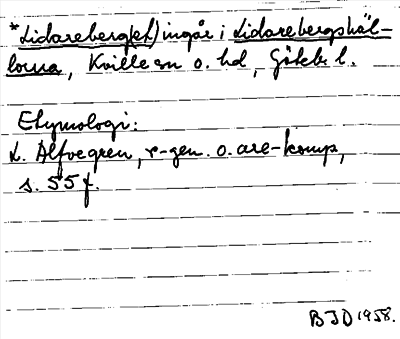 *Lidareberg(et) ingår i Lidarebergshäl-
lorna, Kville sn o. hd, Göteb. l.
Etymologi:
L. Alfvegren, r-gen. o. are-komp,
s. 55 f.
BJD 1958.